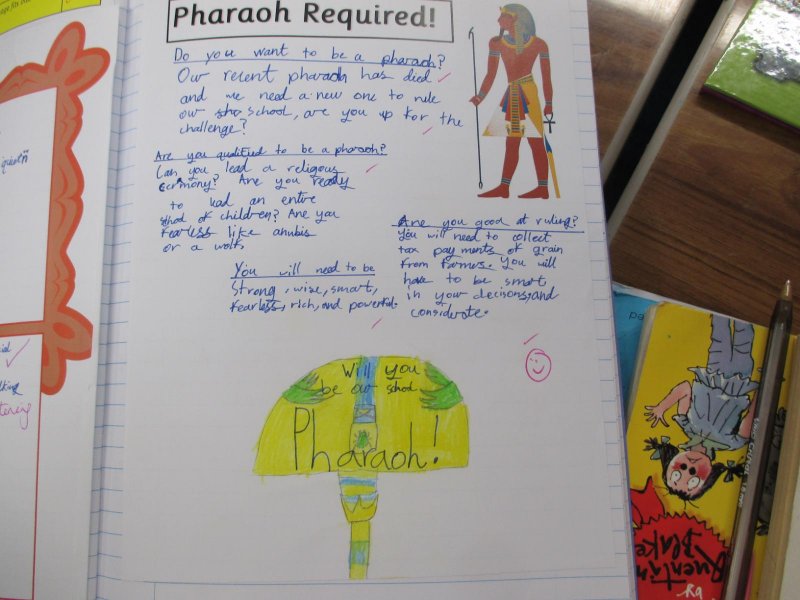 Pharaoh Required!
Do you want to be a pharaoh?
Our recent pharaoh has died
and we need a new one to rule
our school, are you up for the
challenge?
Are you qualified to be a pharaoh?
Can you lead a religious
cermony? Are you ready
to lead an entire
shool of children? Are you
fearless like anubis
or a wolf.
Are you good at ruling?
You will need to collect
tax payments of grain
from farmers. You will
have to be smart
in your decisons, and
considerate.
You will need to be
Strong, wise, smart,
fearless, rich, and powerful.
Will you
be our school
Pharaoh!
Quentin
Blake
by